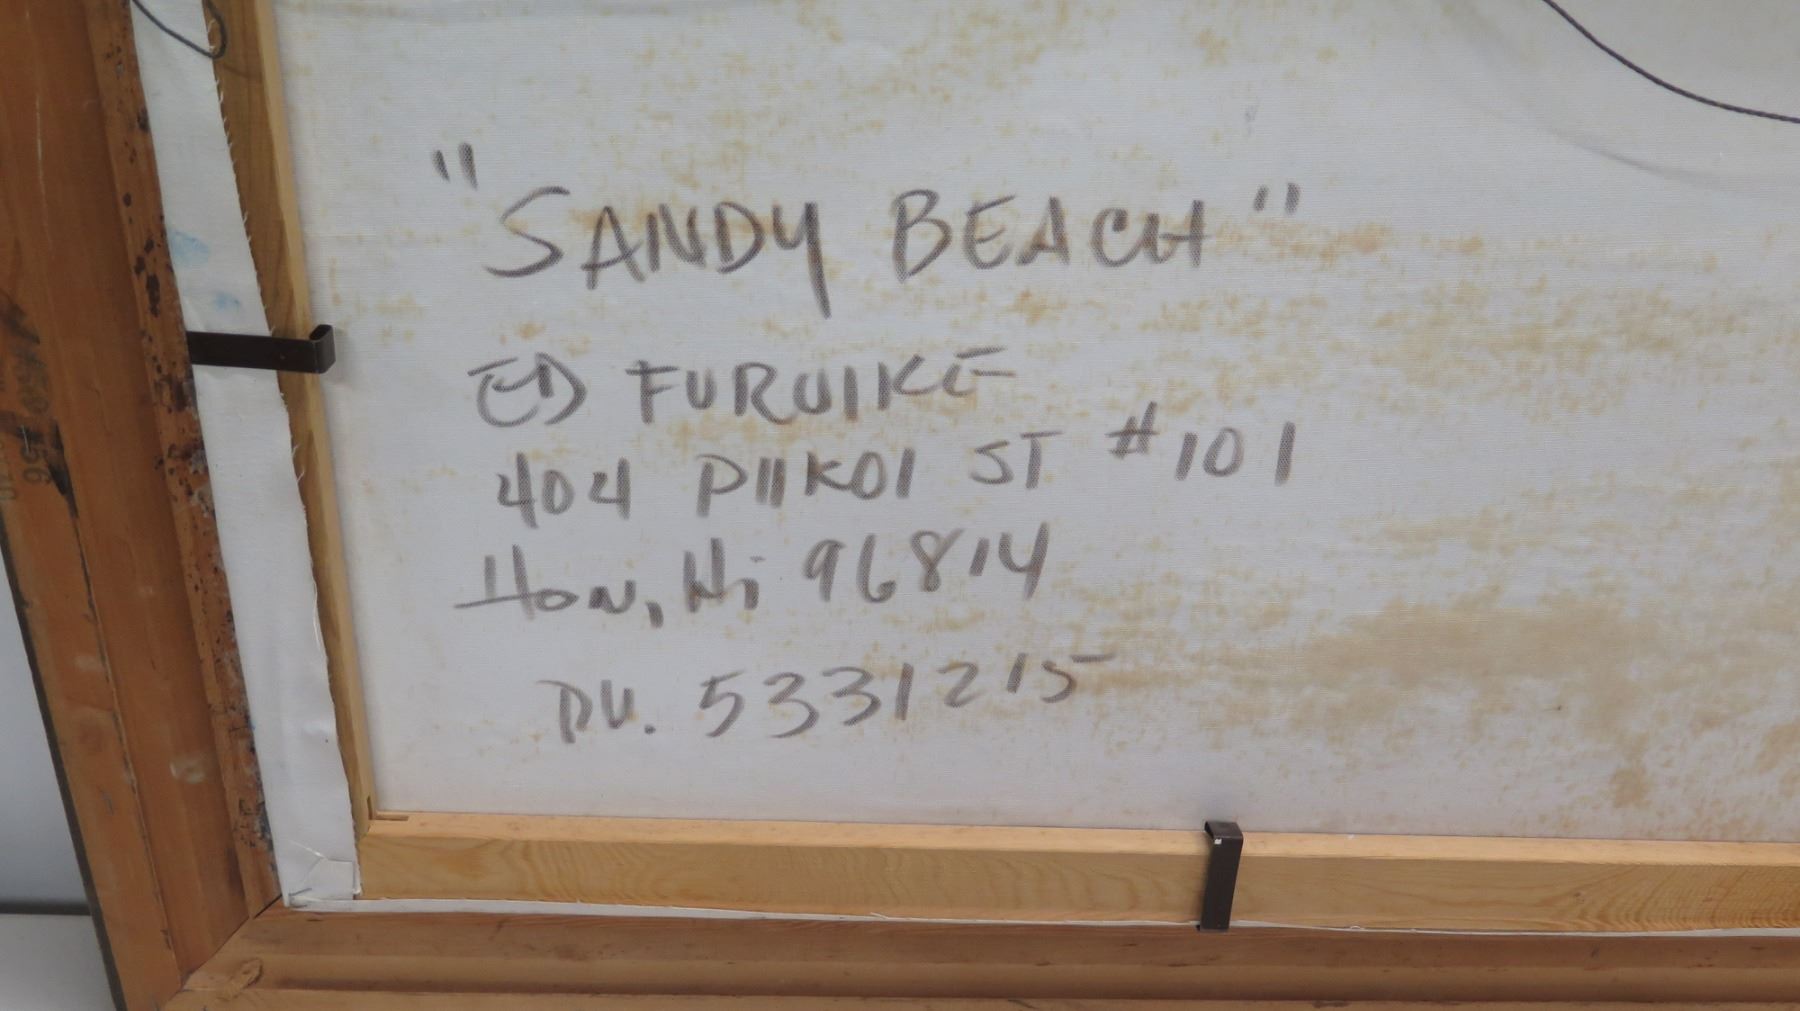 "SANDY BEACH"
ED FURUIKE
404 PIIKOI ST #101
Hon, Hi 96814
PH. 5331215